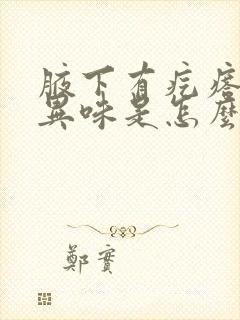 腋下有疙瘩
異味是怎麼
鄭實